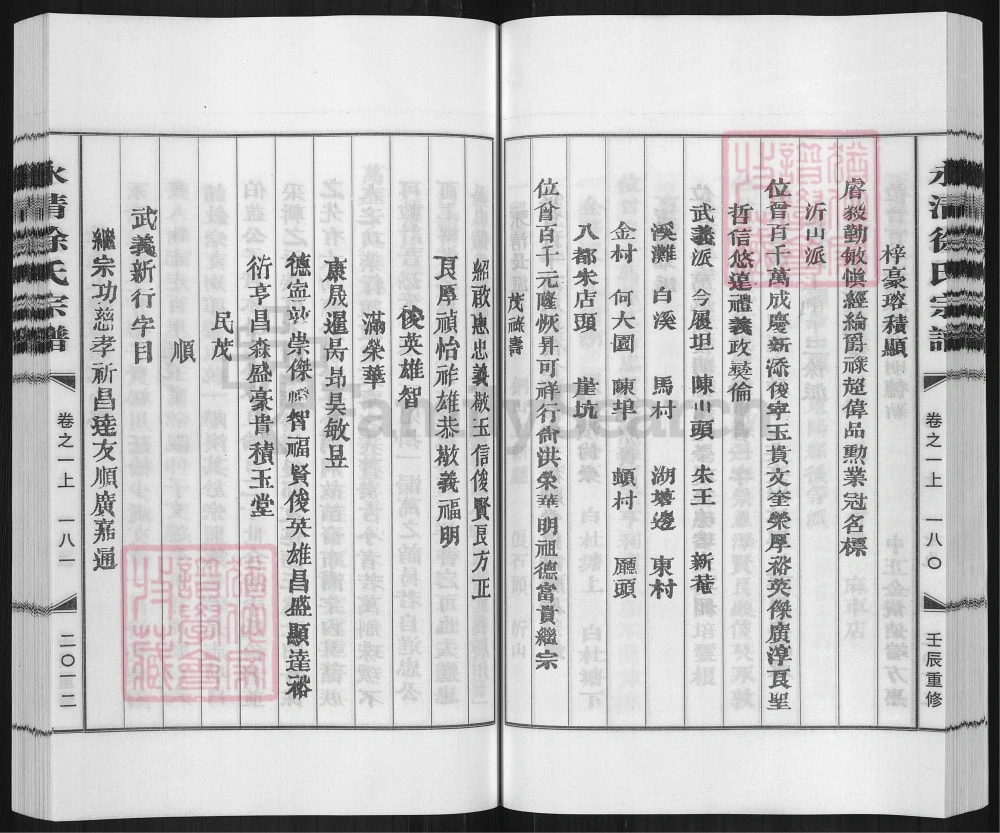 永清徐氏宗譜
卷之一上
一八〇
壬辰重修
梓豪瑢積顯
睿毅勤敏慎經綸爵祿超偉品勳業冠名標
沂山派
位曾百千萬成慶新添俊寧玉貴文奎榮厚裕英傑廣淳良聖
哲信悠遠禮義政彝倫
武義派 今履坦 陳山頭 朱王 新菴
溪灘 白溪 馬村 湖塘邊 東村
金村 何大園 陳埠 頓村 廳頭
八都朱店頭 崖坑
位曾百千元隆恢昇可祥行尚洪榮華明祖德富貴繼宗
茂祿壽
紹啟惠忠義敬玉信俊賢良方正
良厚禎怡祚雄恭敬義福明
俊英雄智
滿榮華
康晟暹昜昂昊敏昱
德寍敦崇傑 智福賢俊英雄昌盛顯達裕
衍亨昌森盛豪貴積玉堂
民茂
順
武義新行字目
繼宗功慈孝祈昌達友順廣嘉通
永清徐氏宗譜
卷之一上
一八一
二〇一二
FamilySearch